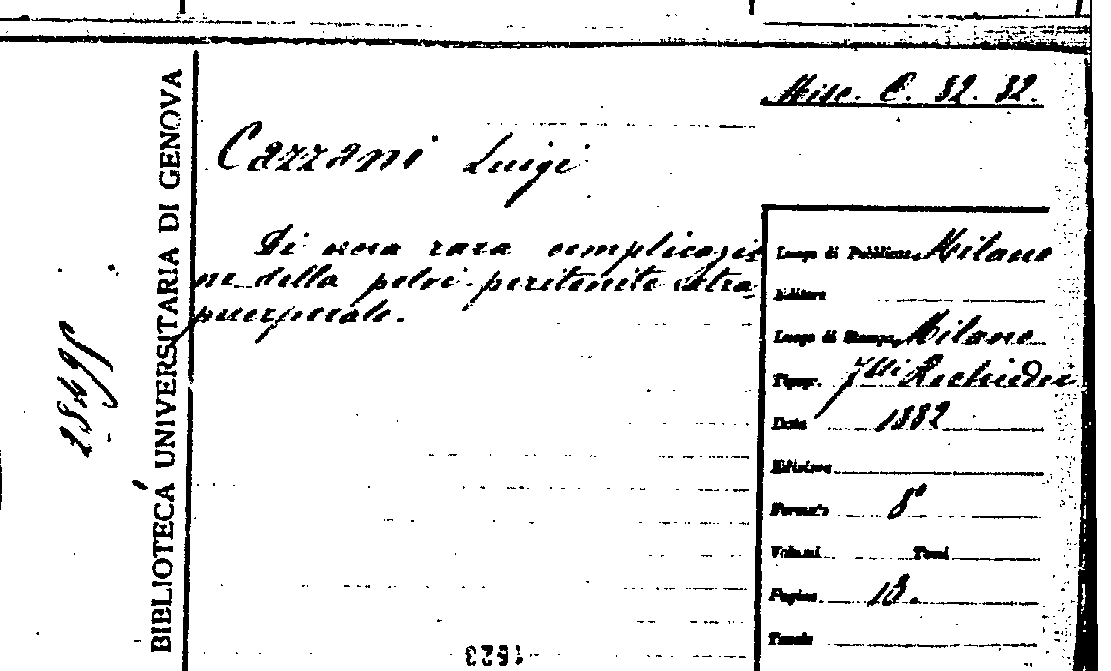 Misc. C. 32. 32.
Cazzani Luigi
Di una rara complicazio
ne della pelvi-peritonite extra-
puerperale.
BIBLIOTECA UNIVERSITARIA DI GENOVA
Luogo di Pubblicaz. Milano
Editore
Luogo di Stampa Milano
Tipogr. Flli Rechiedei
Data 1882
Edizione
Formato 8°
Volumi Tomi
Pagine 13.
Tavole
1623